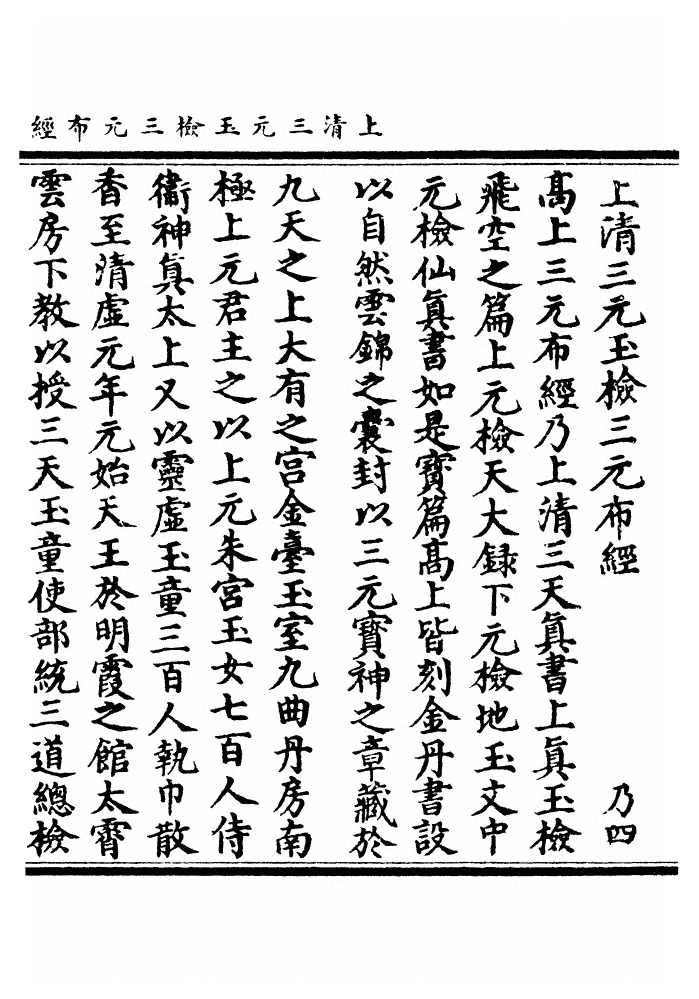 上清三元玉檢三元布經
上清三元玉檢三元布經 乃四
高上三元布經乃上清三天真書上真玉檢
飛空之篇上元檢天大録下元檢地玉文中
元檢仙真書如是寳篇高上皆刻金丹書設
以自然雲錦之囊封以三元寳神之章藏於
九天之上大有之宫金臺玉室九曲丹房南
極上元君主之以上元朱宮玉女七百人侍
衞神真太上又以靈虛玉童三百人執巾散
香至清虛元年元始天王於明霞之館太霄
雲房下教以授三天玉童使部統三道總檢